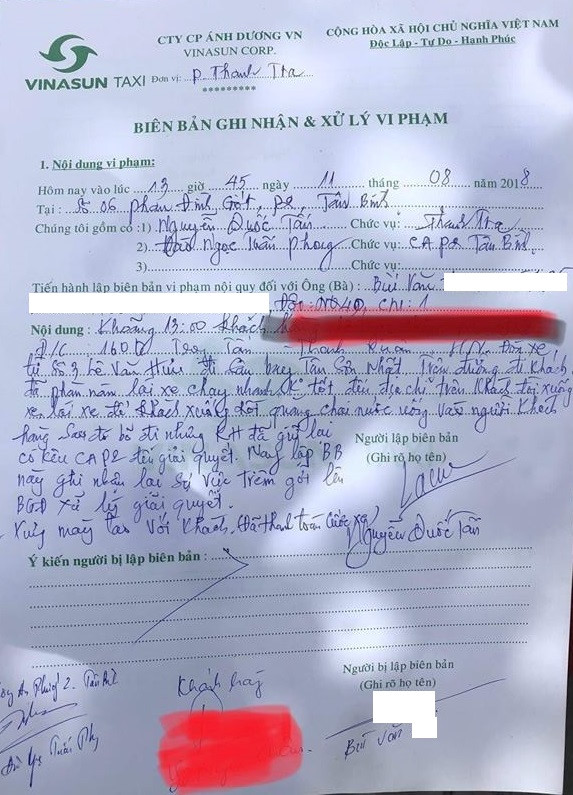 VINASUN TAXI
CTY CP ÁNH DƯƠNG VN
VINASUN CORP.
Đơn vị: P. Thanh Tra
*********
CỘNG HÒA XÃ HỘI CHỦ NGHĨA VIỆT NAM
Độc Lập - Tự Do - Hạnh Phúc
BIÊN BẢN GHI NHẬN & XỬ LÝ VI PHẠM
1. Nội dung vi phạm:
Hôm nay vào lúc 13 giờ 45 ngày 11 tháng 08 năm 2018
Tại: Số 06 Phan Đình Giót, P2, Tân Bình
Chúng tôi gồm có :1) Nguyễn Quốc Tấn Chức vụ: Thanh Tra
2) Ngọc Tuấn Phong Chức vụ: CA P2 Tân Bình
3) Chức vụ:
Tiến hành lập biên bản vi phạm nội quy đối với Ông (Bà) : Bùi Văn
Nội dung : Khoảng 13:00 Khách
Đ/C: 160 Thanh Xuân H.N. xe
từ số 3 Lê Văn Hưu đi sân bay Tân Sơn Nhất. Trên đường đi khách
đã phàn nàn lái xe chạy nhanh K tốt, đến địa chỉ trên khách đòi xuống
xe, lái xe để khách xuống quang chai nước uống vào người khách
hàng sau đó bỏ đi nhưng KH đã giữ lại
có kêu CA P2 tới giải quyết. Nay lập BB
này ghi nhận lại sự việc trên gởi lên
BGĐ xử lý giải quyết.
Xưng mày tao với khách. Đã thanh toán cước xe
Người lập biên bản
(Ghi rõ họ tên)
Nguyễn Quốc Tấn
Ý kiến người bị lập biên bản :
Khách hàng
Người bị lập biên bản
(Ghi rõ họ tên)
Bùi Văn